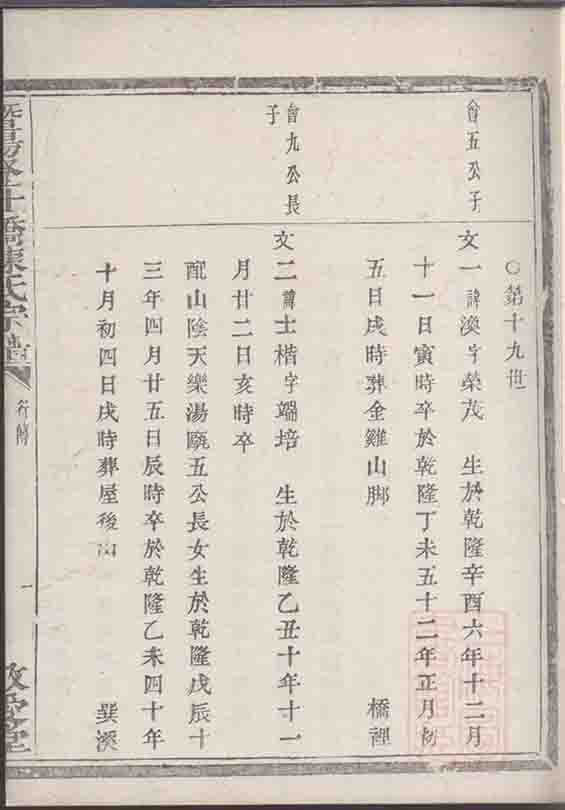 ○第十九世
會五公子
文一諱渙字榮茂 生於乾隆辛酉六年十二月
十一日寅時卒於乾隆丁未五十二年正月初
五日戌時葬金雞山脚 橋裡
會九公長
子
文二諱士楷字端培 生於乾隆乙丑十年十一
月廿二日亥時卒
配山陰天樂湯 五公長女生於乾隆戊辰十
三年四月廿五日辰時卒於乾隆乙未四十年
十月初四日戌時葬屋後山 巽溪
橋陳氏宗譜
行傳
一